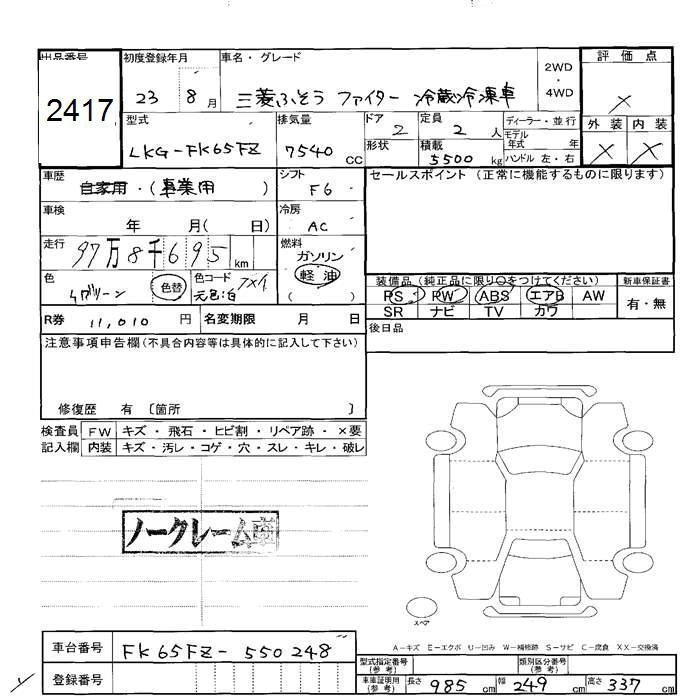 出品番号 初度登録年月 車名・グレード 2WD・4WD 評価点
2417 23 8月 三菱ふそう ファイター 冷蔵冷凍車 ×
型式 排気量 ドア 定員 ディーラー・並行 外装 内装
LKG-FK65FZ 7540 CC 2 2 人 モデル年式 年 × ×
形状 積載 5500 kg ハンドル 左・右
車歴 シフト セールスポイント (正常に機能するものに限ります)
自家用・(事業用 ) F6
車検 冷房
年 月( 日) AC
走行 燃料
97万8千695 km ガソリン
軽油
色 色替 色コード ( )
元色:白
装備品 (純正品に限り○をつけてください) 新車保証書
PS PW ABS エアB AW 有・無
SR ナビ TV カワ
R券 11,010 円 名変期限 月 日 後日品
注意事項申告欄(不具合内容等は具体的に記入して下さい)
修復歴 有 〔箇所 〕
検査員 FW キズ・飛石・ヒビ割・リペア跡・×要
記入欄 内装 キズ・汚レ・コゲ・穴・スレ・キレ・破レ
ノークレーム車
スペア
A-キズ E-エクボ U-凹み W-補修跡 S-サビ C-腐食 XX-交換済
車台番号 FK65FZ-550248
登録番号
型式指定番号(参考) 類別区分番号(参考)
車庫証明用(参考) 長さ 985 cm 幅 249 cm 高さ 337 cm